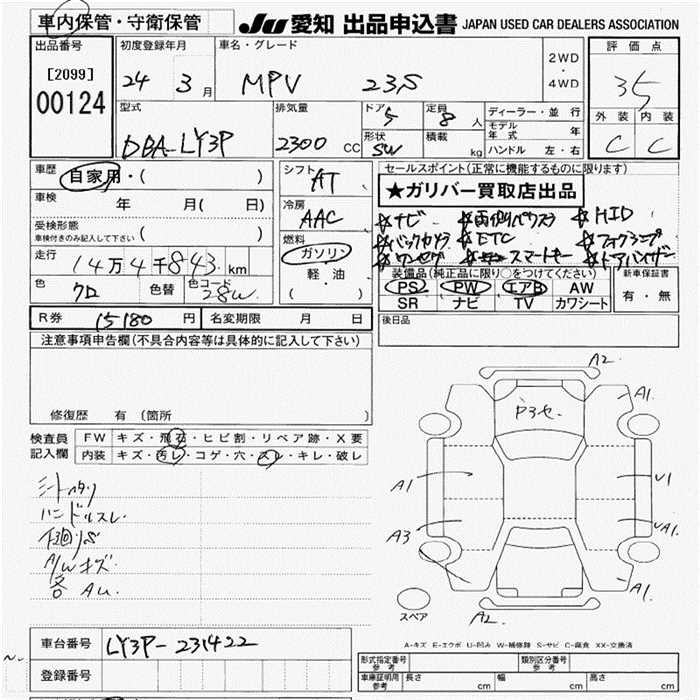 車内保管・守衛保管 JU 愛知 出品申込書 JAPAN USED CAR DEALERS ASSOCIATION
出品番号 初度登録年月 車名・グレード 評価点
[2099] 00124
24 3月 MPV 23S 2WD・4WD 3.5
型式 排気量 ドア 定員 ディーラー・並行 外装 内装
DBA-LY3P 2300 CC 5 8人 モデル年式 年式 C C
形状 SW 積載 kg ハンドル 左・右
車歴 自家用・( ) シフト AT セールスポイント(正常に機能するものに限ります)
★ガリバー買取店出品
車検 年 月( 日) 冷房 AAC
受検形態 車検付きのみ記入して下さい ( )
ナビ 両側パワスラ HID
バックカメラ ETC フォグランプ
ワンセグ スマートキー ドアバイザー
走行 14万4千843 km 燃料 ガソリン 軽・油 ( )
色 クロ 色替 色コード 28W
装備品(純正品に限り○をつけてください) 新車保証書
PS PW エアB AW 有・無
SR ナビ TV カワシート
R券 15180 円 名変期限 月 日 後日品
注意事項申告欄(不具合内容等は具体的に記入して下さい)
修復歴 有(箇所 )
検査員記入欄 FW キズ・飛石・ヒビ割・リペア跡・X要
内装 キズ・汚レ・コゲ・穴・スレ・キレ・破レ
シートヘタリ
ハンドルスレ
A/Wキズ
各AU
A2
A1
A1 U1
A3 UA1
A1
A2
スペア
A-キズ E-エクボ U-凹み W-補修跡 S-サビ C-腐食 XX-交換済
車台番号 LY3P-231422
登録番号
形式指定番号 参考 類別区分番号 参考
車庫証明用 参考 長さ cm 幅 cm 高さ cm